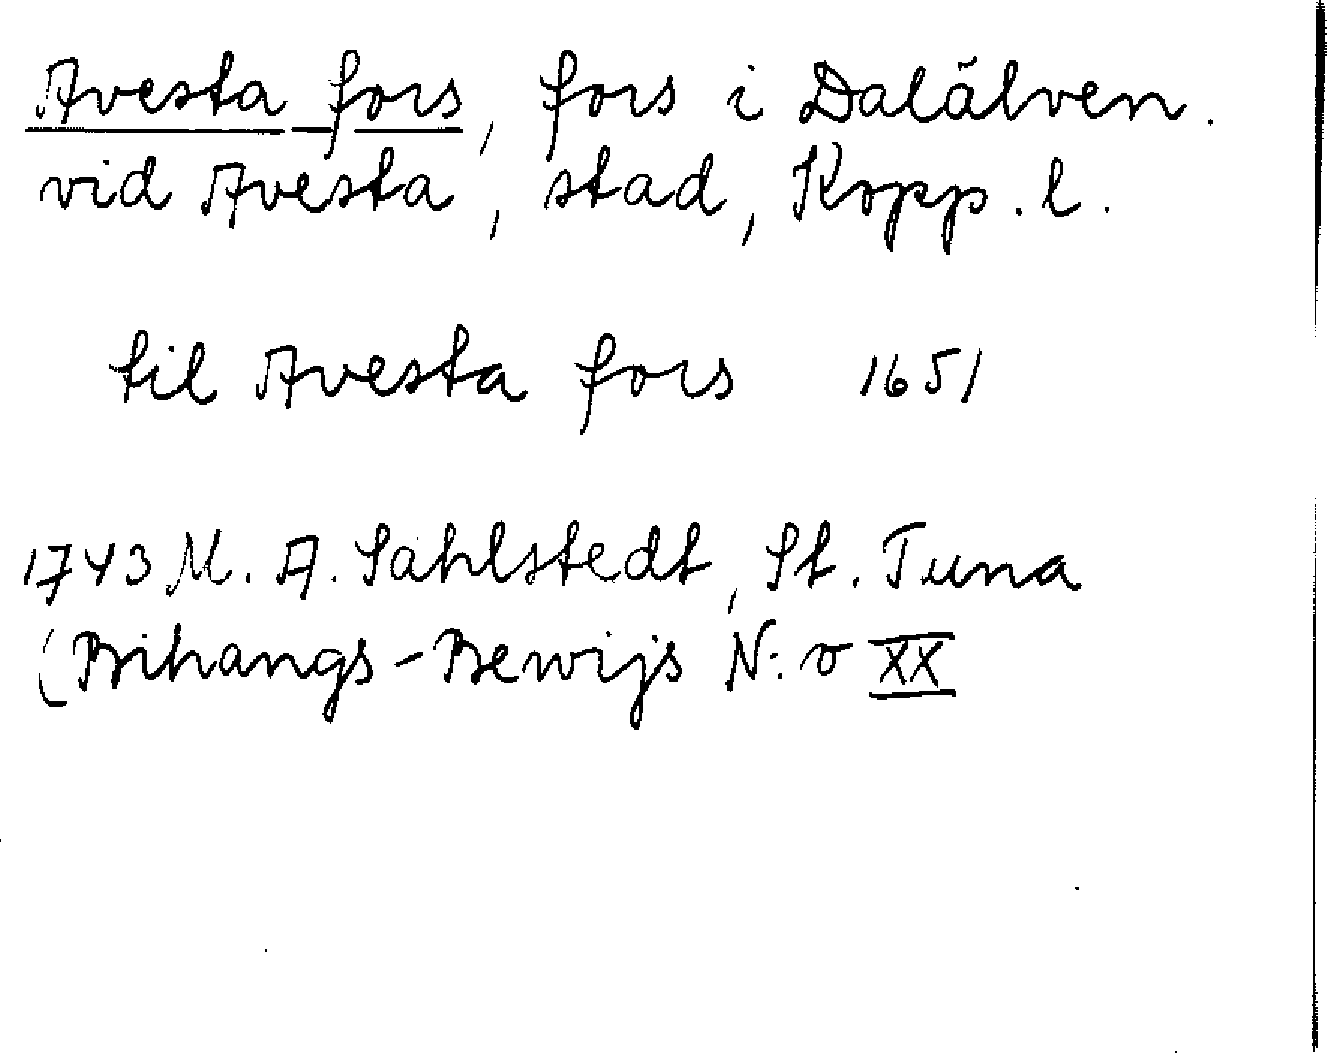 Avesta fors, fors i Dalälven.
vid Avesta, stad, Kopp. l.
til Avesta fors 1651
1743 M. A. Sahlstedt, St. Tuna
(Bihangs-Bewijs N:o XX